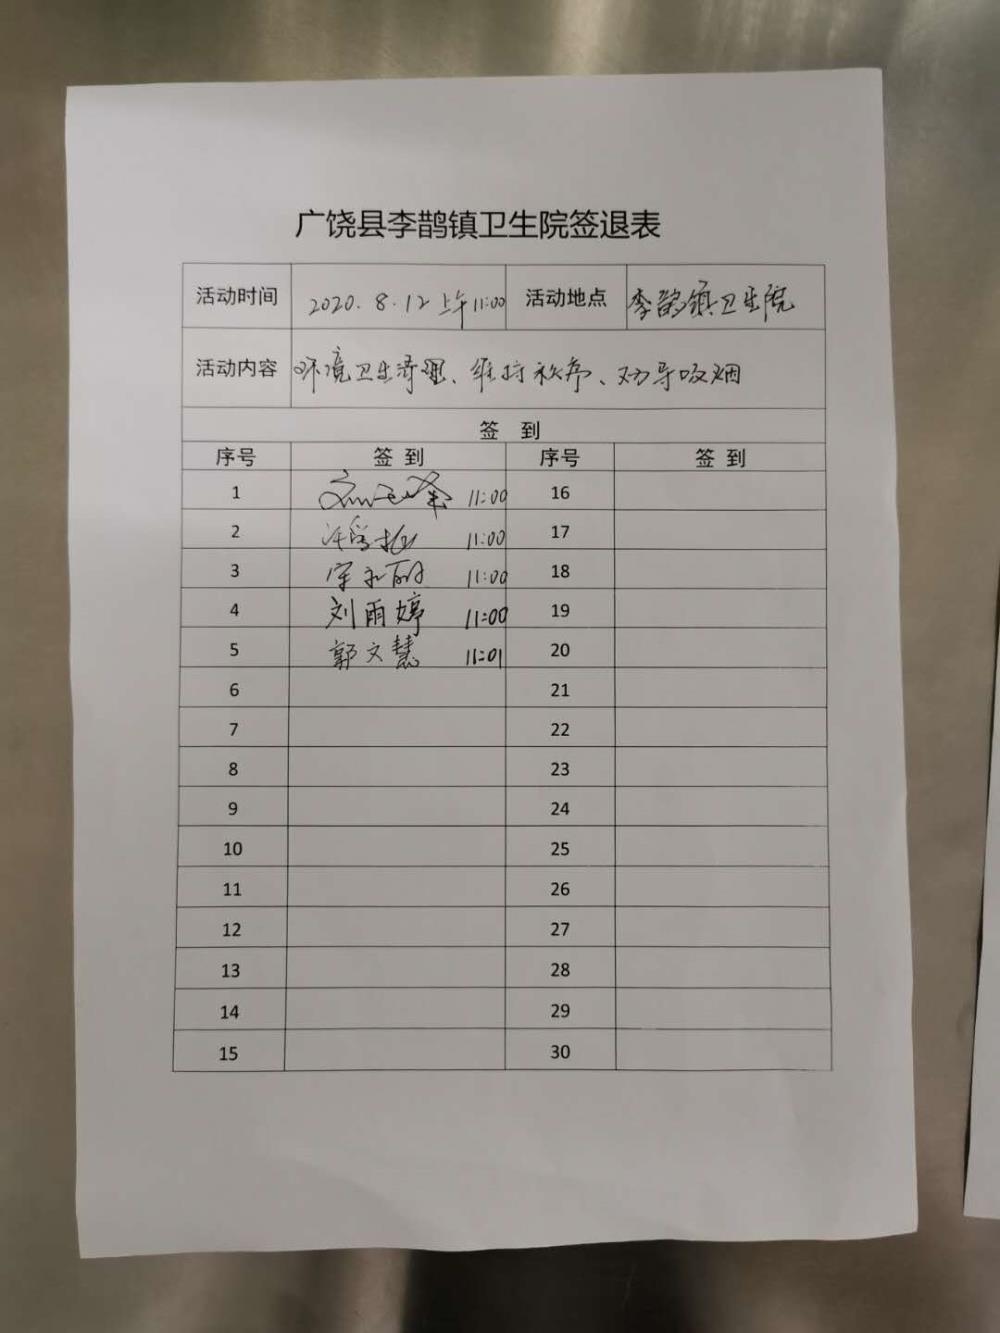 广饶县李鹊镇卫生院签退表
活动时间 2020.8.12 上午11:00 活动地点 李鹊镇卫生院
活动内容 环境卫生清理、维持秩序、劝导吸烟
签 到
序号 签 到 序号 签 到
1 11:00 16
2 11:00 17
3 11:00 18
4 刘雨婷 11:00 19
5 郭文慧 11:01 20
6 21
7 22
8 23
9 24
10 25
11 26
12 27
13 28
14 29
15 30